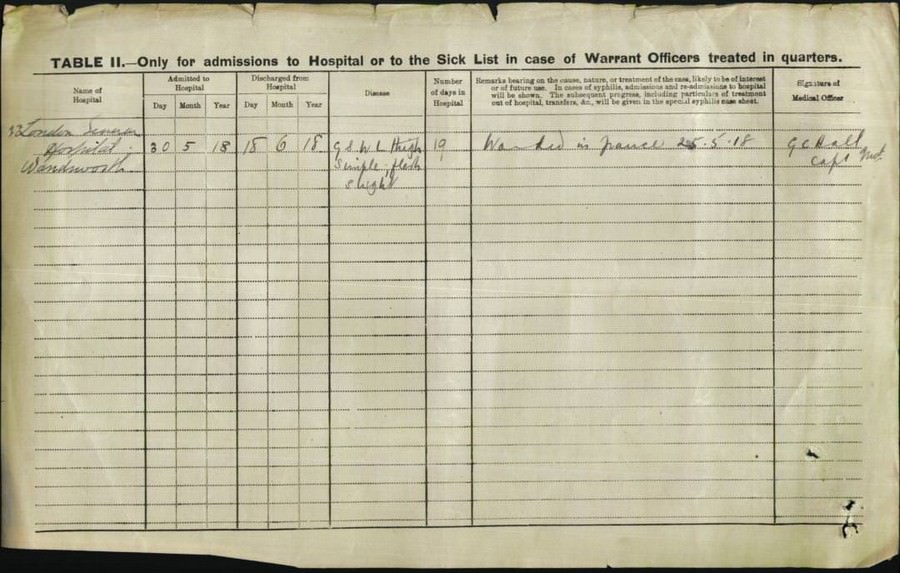 TABLE II.—Only for admissions to Hospital or to the Sick List in case of Warrant Officers treated in quarters.
Name of
Hospital
Admitted to
Hospital
Day Month Year
Discharged from
Hospital
Day Month Year
Disease
Number
of days in
Hospital
Remarks bearing on the cause, nature, or treatment of the case, likely to be of interest
or of future use. In cases of syphilis, admissions and re-admissions to hospital
will be shown. The subsequent progress, including particulars of treatment
out of hospital, transfers, &c., will be given in the special syphilis case sheet.
Signature of
Medical Officer
London General
Hospital
Wandsworth
30 5 18 18 6 18
G S W L Thigh
Simple, flesh
slight
19
Wounded in France 25.5.18
Capt